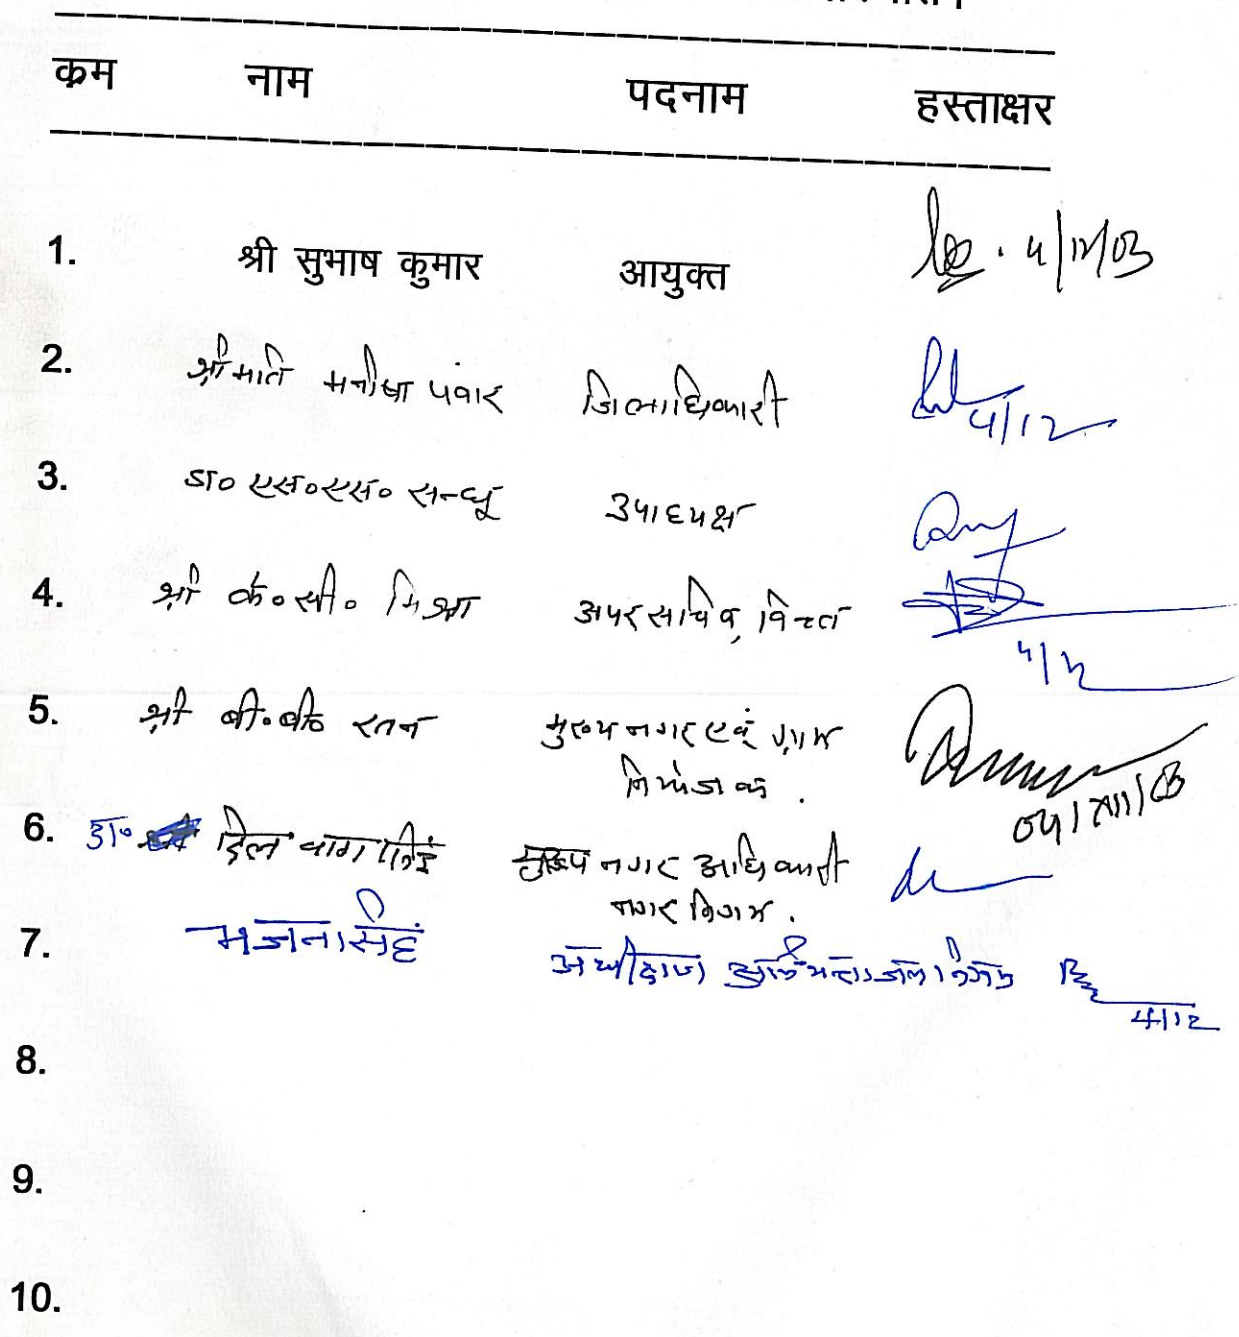 क्रम नाम पदनाम हस्ताक्षर
1. श्री सुभाष कुमार आयुक्त 4/12/03
2. श्रीमति मनीषा पंवार जिलाधिकारी 4/12
3. डा० एस०एस० सन्धू उपाध्यक्ष
4. श्री के०सी० मिश्रा अपर सचिव, वित्त 4/12
5. श्री बी०बी० रतन मुख्य नगर एवं ग्राम
नियोजक.
6. डा० दिल बाग सिंह मुख्य नगर अधिकारी
नगर निगम.
7. भजन सिंह जल निगम 4/12
8.
9.
10.